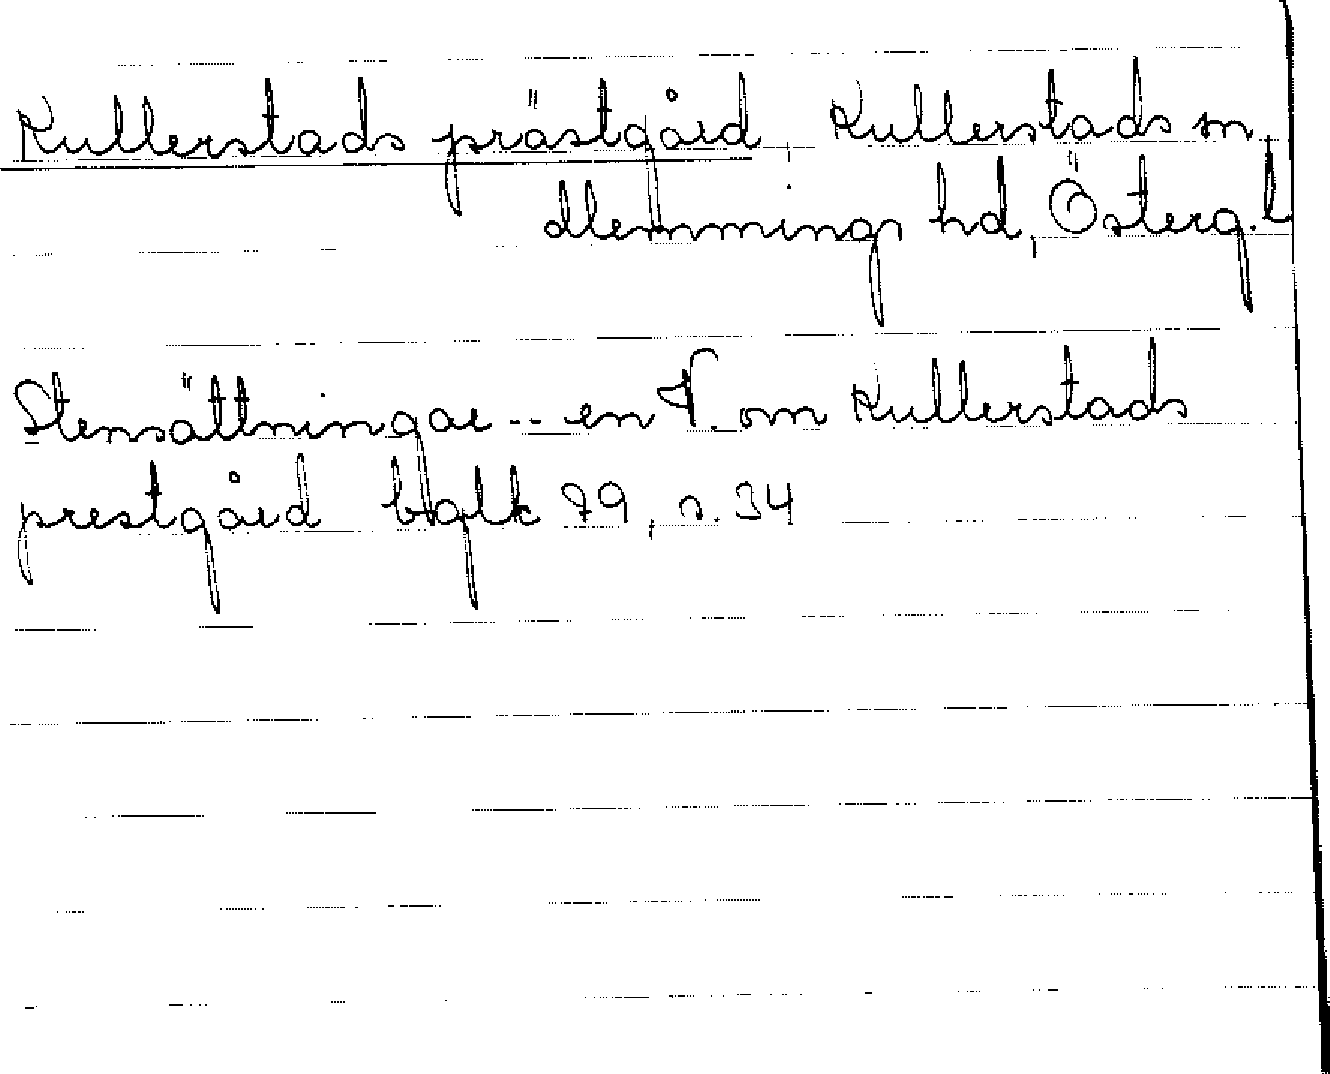 Kullerstads prästgård, Kullerstads sn,
Memmings hd, Österg.l
Stensättningar -- en V. om Kullerstads
prestgård btglk 79, s. 34